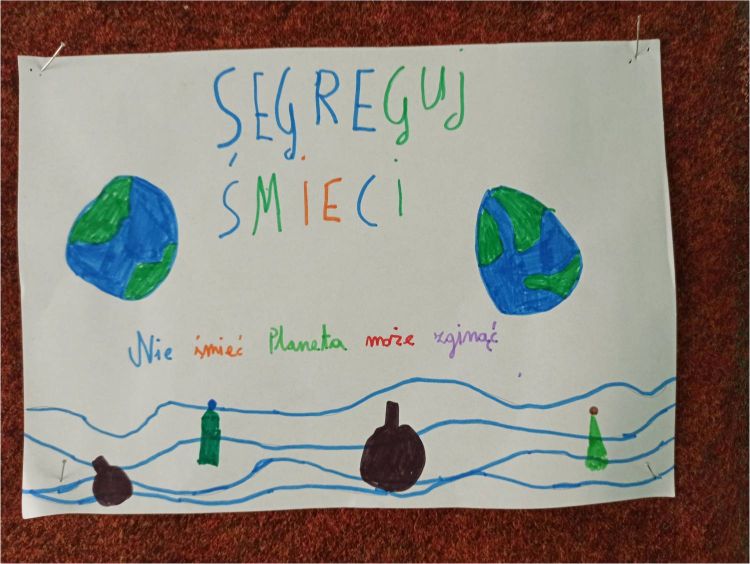 SEGREGUJ
ŚMIECI
Nie śmieć Planeta może zginąć